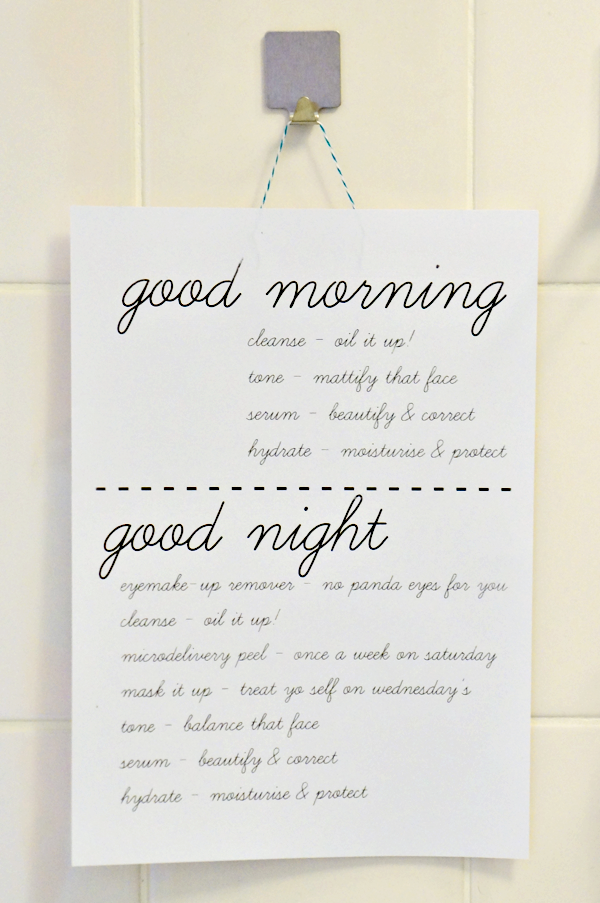 good morning
cleanse - oil it up!
tone - mattify that face
serum - beautify & correct
hydrate - moisturise & protect
good night
eyemake-up remover - no panda eyes for you
cleanse - oil it up!
microdelivery peel - once a week on saturday
mask it up - treat yo self on wednesday's
tone - balance that face
serum - beautify & correct
hydrate - moisturise & protect